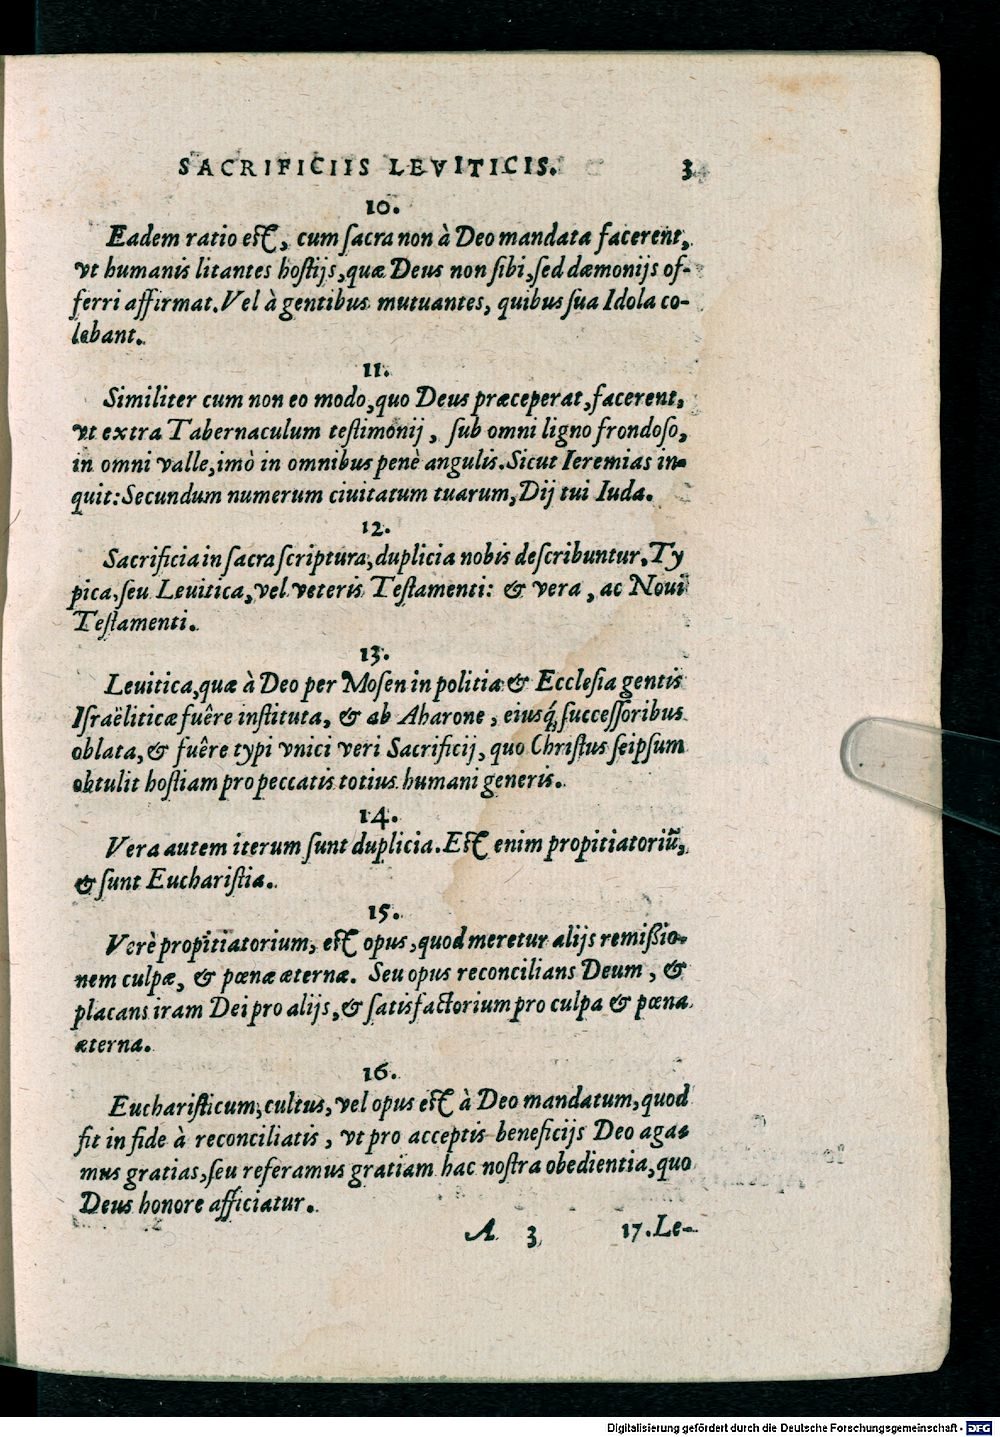 SACRIFICIIS LEVITICIS. 3
10.
Eadem ratio est, cum sacra non à Deo mandata facerent,
vt humanis litantes hostijs, quæ Deus non sibi, sed dæmonijs of-
ferri affirmat. Vel à gentibus mutuantes, quibus sua Idola co-
lebant.
11.
Similiter cum non eo modo, quo Deus præceperat, facerent,
vt extra Tabernaculum testimonij, sub omni ligno frondoso,
in omni valle, imò in omnibus penè angulis. Sicut Ieremias in-
quit: Secundum numerum ciuitatum tuarum, Dij tui Iuda.
12.
Sacrificia in sacra scriptura, duplicia nobis describuntur, Ty
pica, seu Leuitica, vel veteris Testamenti: & vera, ac Noui
Testamenti.
13.
Leuitica, quæ à Deo per Mosen in politia & Ecclesia gentis
Israëliticæ fuêre instituta, & ab Aharone, eiusq́; successoribus
oblata, & fuêre typi vnici veri Sacrificij, quo Christus seipsum
obtulit hostiam pro peccatis totius humani generis.
14.
Vera autem iterum sunt duplicia. Est enim propitiatoriũ,
& sunt Eucharistia.
15.
Verè propitiatorium, est opus, quod meretur alijs remißio-
nem culpæ, & pœnæ æternæ. Seu opus reconcilians Deum, &
placans iram Dei pro alijs, & satisfactorium pro culpa & pœna
æterna.
16.
Eucharisticum, cultus, vel opus est à Deo mandatum, quod
fit in fide à reconciliatis, vt pro acceptis beneficijs Deo aga-
mus gratias, seu referamus gratiam hac nostra obedientia, quo
Deus honore afficiatur.
A 3 17. Le-
Digitalisierung gefördert durch die Deutsche Forschungsgemeinschaft - DFG